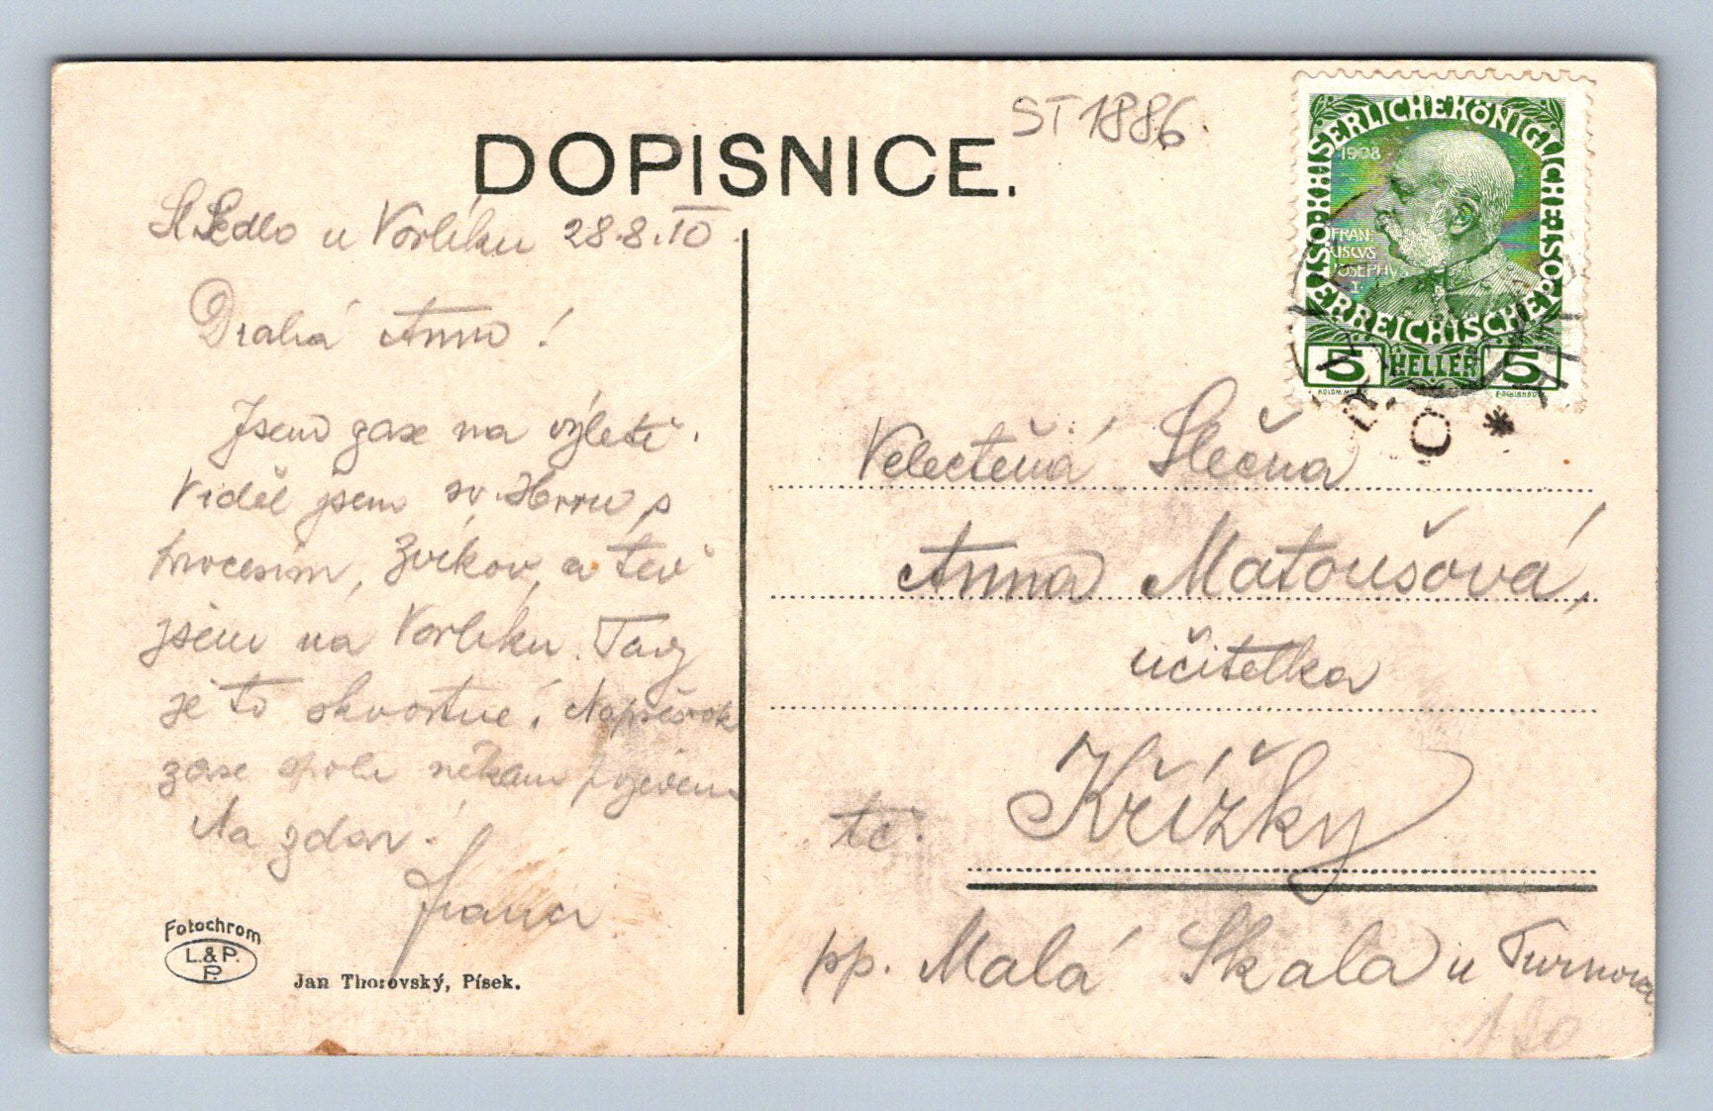 DOPISNICE.
ST 1886.
St. Sedlo u Vorlíku 28.8.10.
Drahá Anno!
Jsem zase na výletě.
Viděl jsem sv. Horu s
procesím, Zvíkov, a teď
jsem na Vorlíku. Tady
je to skvostné! Napřesrok
zase spolu někam pojedem
Na zdar!
Franci
Fotochrom
L.&P.
P.
Jan Thorovský, Písek.
KAISERLICHE KÖNIGLICHE ÖSTERREICHISCHE POST
1908
FRAN
CISCVS
JOSEPHVS
I.
5 HELLER 5
Velectěná Slečna
Anna Matoušová,
učitelka
tč. Křížky
pp. Malá Skala u Turnova